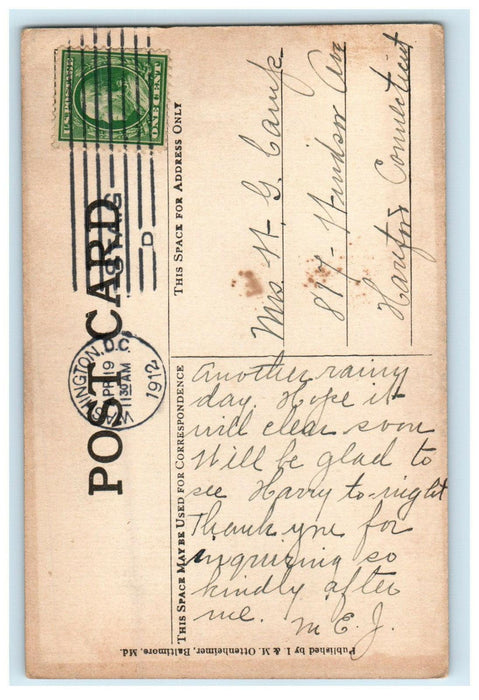 U.S. POSTAGE
ONE CENT
POST CARD
WASHINGTON, D.C.
APR 19
1130 AM
1912
D
THIS SPACE FOR ADDRESS ONLY
Mrs H. G. Camp
817 - Windsor Av
Hartford Connecticut
THIS SPACE MAY BE USED FOR CORRESPONDENCE
Another rainy
day. Hope it
will clear soon
Will be glad to
see Harry to-night
Thank you for
inquiring so
kindly after
me. M E. J.
Published by I. & M. Ottenheimer, Baltimore, Md.